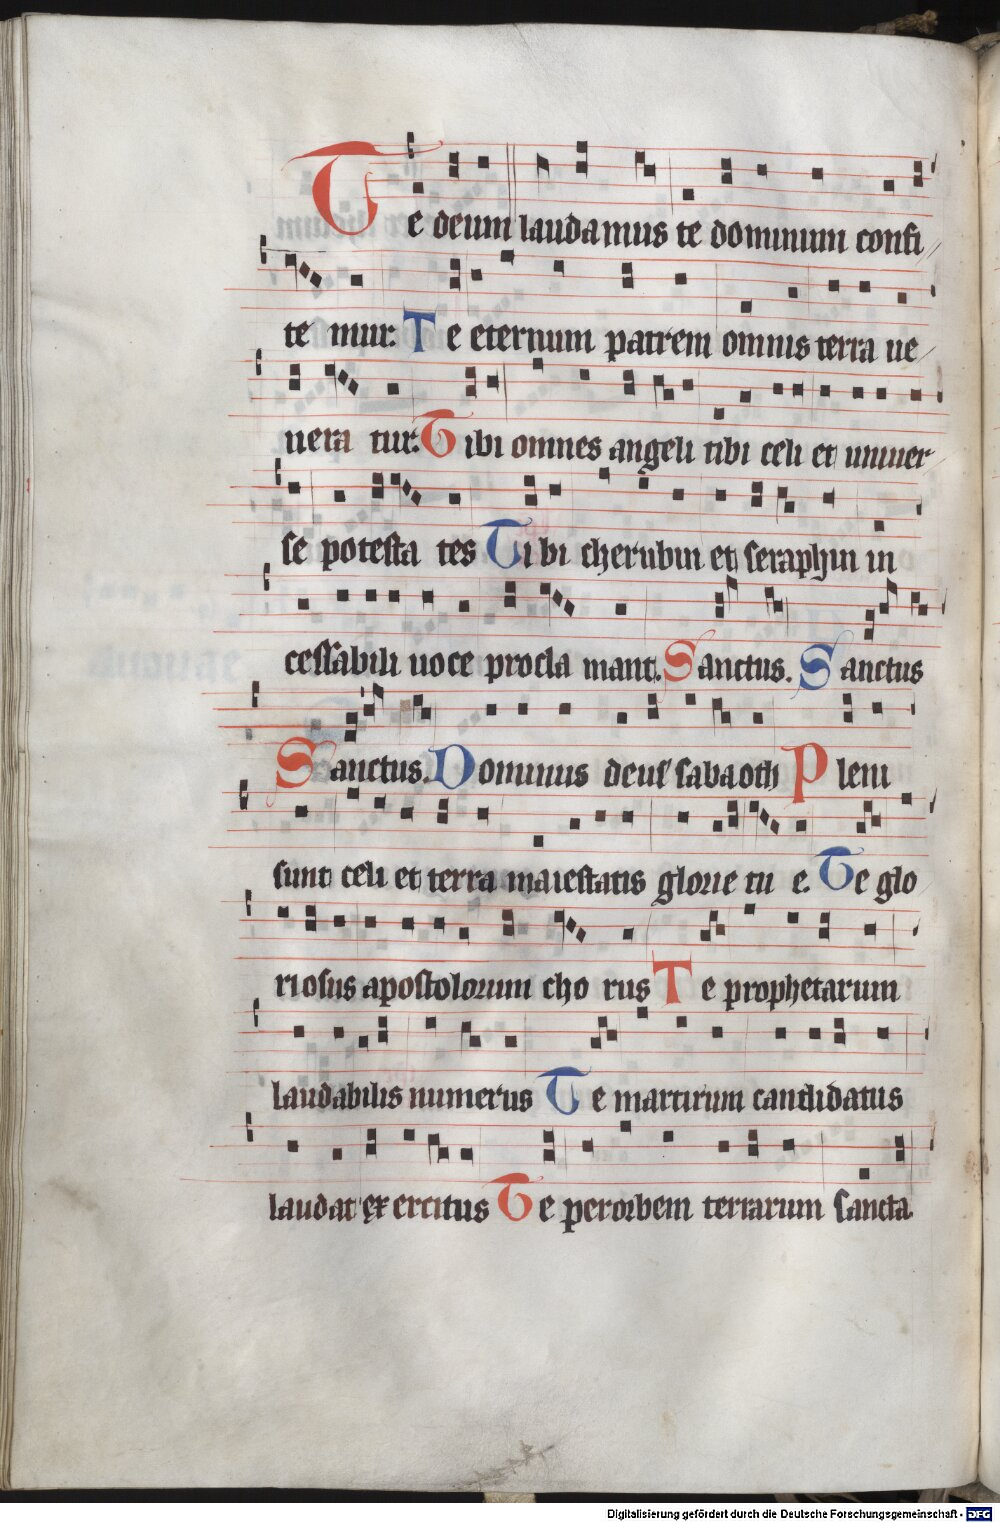 Te deum laudamus te dominum confi
te mur. Te eternum patrem omnis terra ve
nera tur. Tibi omnes angeli tibi celi et univer
se potesta tes Tibi cherubin et seraphin in
cessabili voce procla mant. Sanctus. Sanctus
Sanctus. Dominus deus sabaoth Pleni
sunt celi et terra maiestatis glorie tu e. Te glo
riosus apostolorum cho rus Te prophetarum
laudabilis numerus Te martirum candidatus
laudat exercitus Te per orbem terrarum sancta
Digitalisierung gefördert durch die Deutsche Forschungsgemeinschaft - DFG